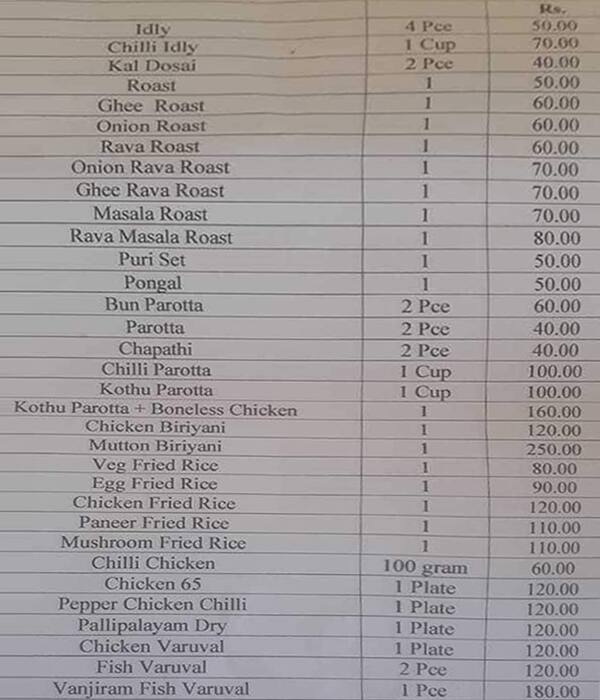 Rs.
Idly 4 Pce 50.00
Chilli Idly 1 Cup 70.00
Kal Dosai 2 Pce 40.00
Roast 1 50.00
Ghee Roast 1 60.00
Onion Roast 1 60.00
Rava Roast 1 60.00
Onion Rava Roast 1 70.00
Ghee Rava Roast 1 70.00
Masala Roast 1 70.00
Rava Masala Roast 1 80.00
Puri Set 1 50.00
Pongal 1 50.00
Bun Parotta 2 Pce 60.00
Parotta 2 Pce 40.00
Chapathi 2 Pce 40.00
Chilli Parotta 1 Cup 100.00
Kothu Parotta 1 Cup 100.00
Kothu Parotta + Boneless Chicken 1 160.00
Chicken Biriyani 1 120.00
Mutton Biriyani 1 250.00
Veg Fried Rice 1 80.00
Egg Fried Rice 1 90.00
Chicken Fried Rice 1 120.00
Paneer Fried Rice 1 110.00
Mushroom Fried Rice 1 110.00
Chilli Chicken 100 gram 60.00
Chicken 65 1 Plate 120.00
Pepper Chicken Chilli 1 Plate 120.00
Pallipalayam Dry 1 Plate 120.00
Chicken Varuval 1 Plate 120.00
Fish Varuval 2 Pce 120.00
Vanjiram Fish Varuval 1 Pce 180.00